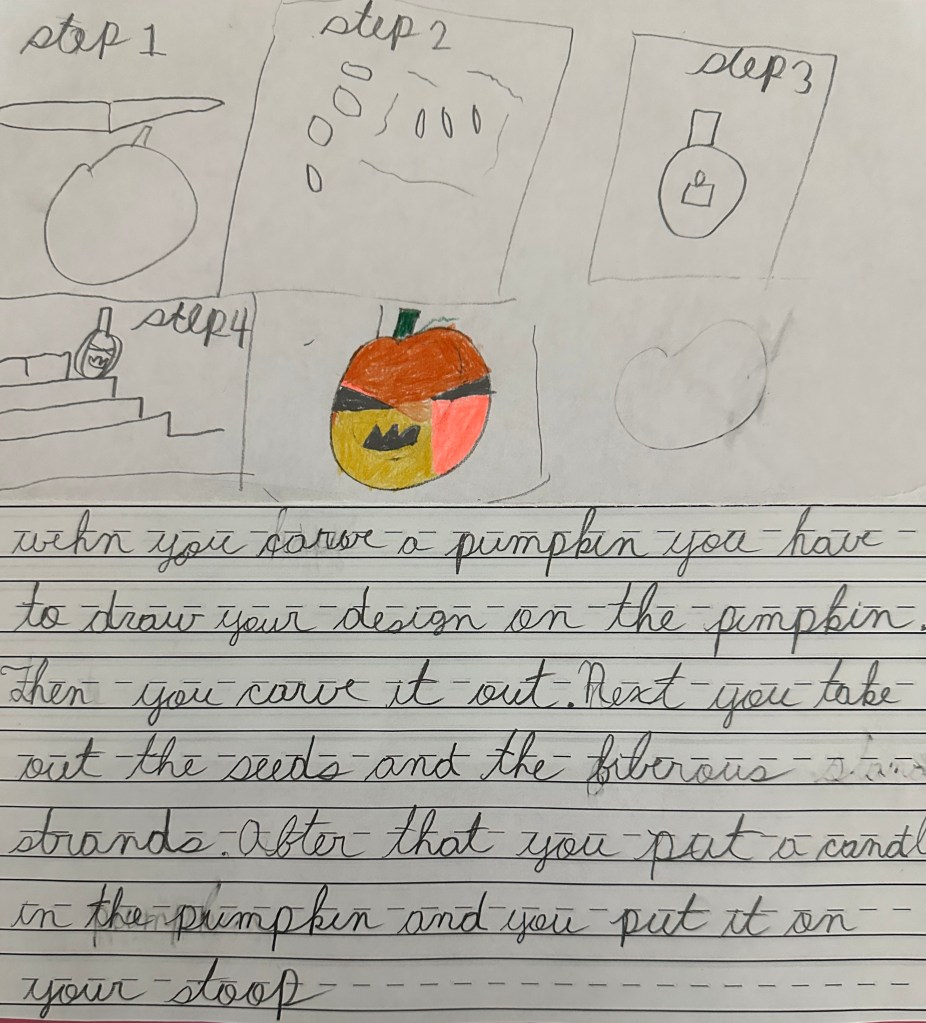 step 1
step 2
step 3
step 4
wehn you carve a pumpkin you have
to draw your design on the pumpkin.
Then you carve it out. Next you take
out the seeds and the fiberous
strands. After that you put a candl
in the pumpkin and you put it on
your stoop